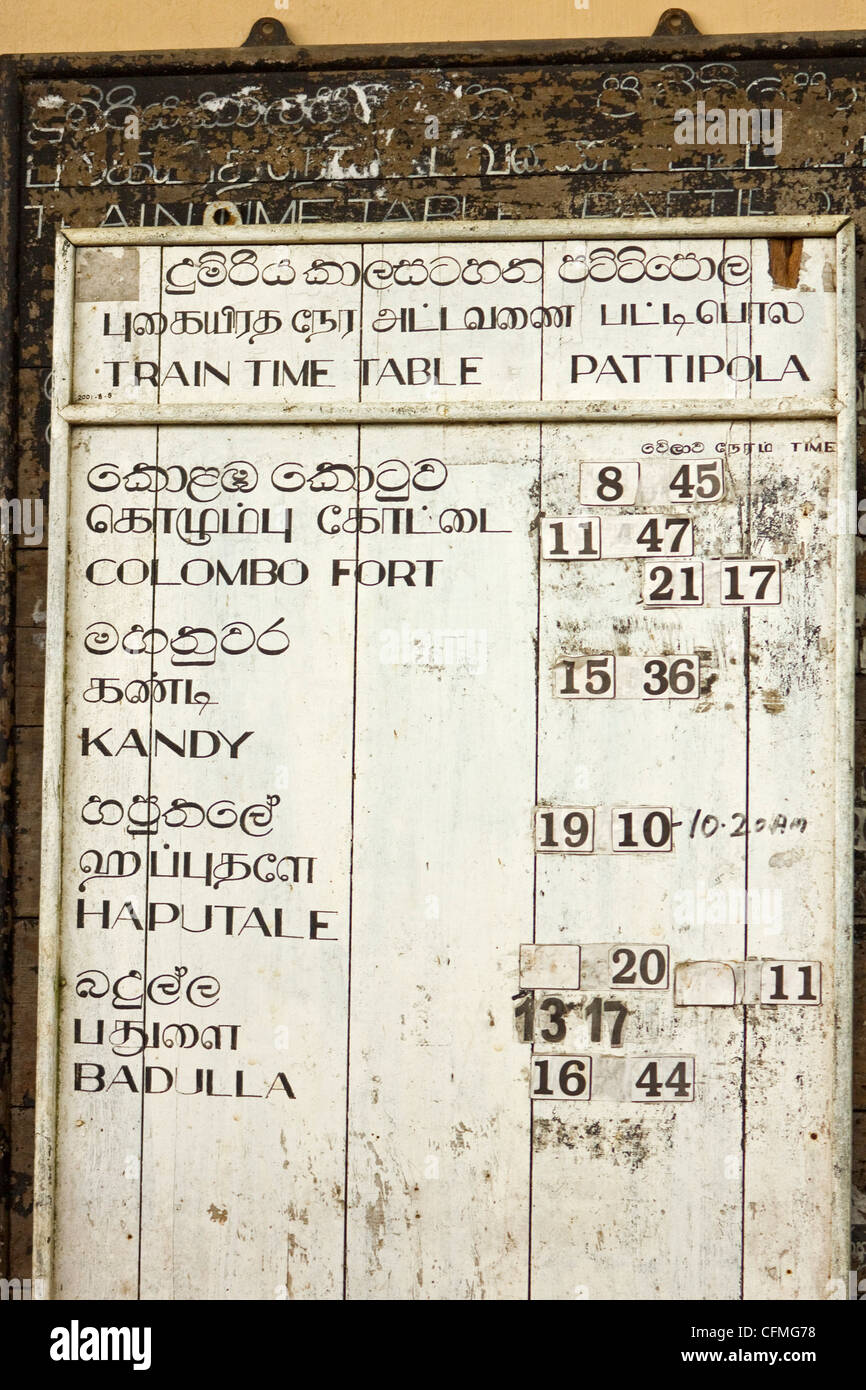 TRAIN TIME TABLE
දුම්රිය කාලසටහන පට්ටිපොල
புகையிரத நேர அட்டவணை பட்டிபொல
TRAIN TIME TABLE PATTIPOLA
2001-8-8
වේලාව நேரம் TIME
කොළඹ කොටුව 8 45
கொழும்பு கோட்டை 11 47
COLOMBO FORT 21 17
මහනුවර
கண்டி 15 36
KANDY
හපුතලේ 19 10-10.20AM
ஹப்புதளே
HAPUTALE
බදුල්ල 20 11
பதுளை 13 17
BADULLA 16 44
alamy
Image ID: CFMG78
www.alamy.com